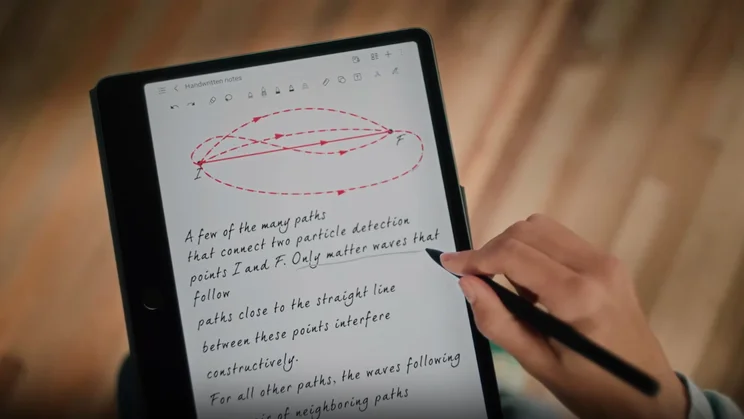 Handwritten notes
I
F
A few of the many paths
that connect two particle detection
points I and F. Only matter waves that
follow
paths close to the straight line
between these points interfere
constructively.
For all other paths, the waves following
of neighboring paths